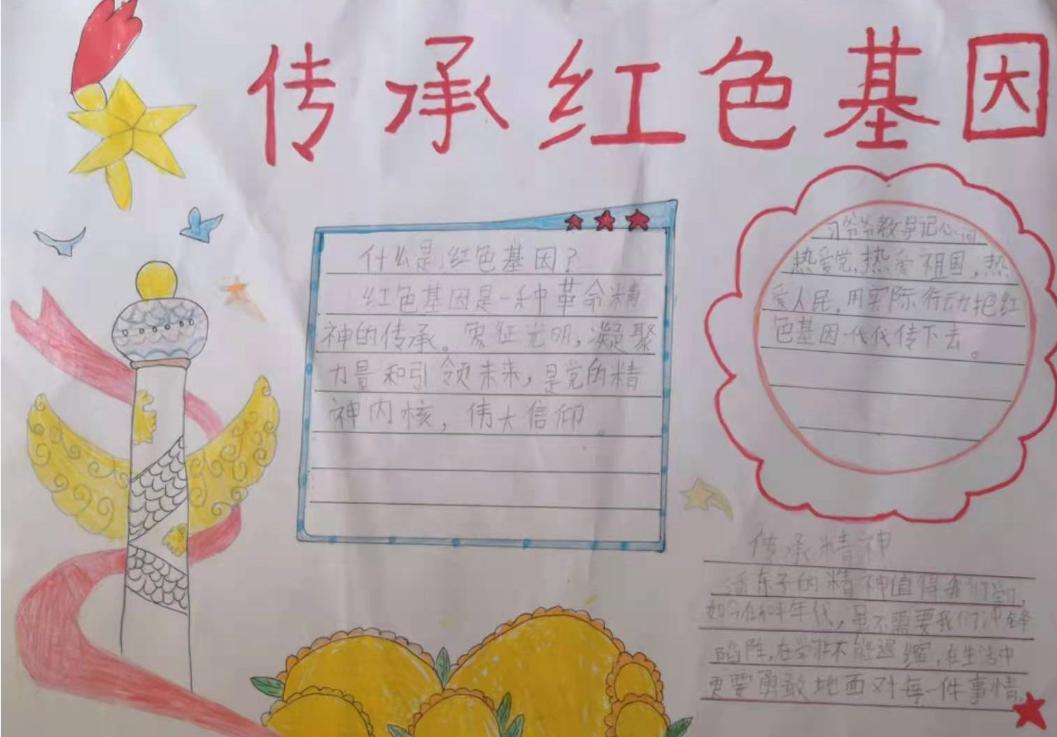 传承红色基因
什么是红色基因？
红色基因是一种革命精
神的传承。象征光明，凝聚
力量和引领未来，是党的精
神内核，伟大信仰。
习爷爷教导记心间
热爱党，热爱祖国，热
爱人民，用实际行动把红
色基因代代传下去。
传承精神
东子的精神值得我们学习，
如今在和平年代，虽不需要我们冲锋
陷阵，在学业不能退缩，在生活中
更要勇敢地面对每一件事情。